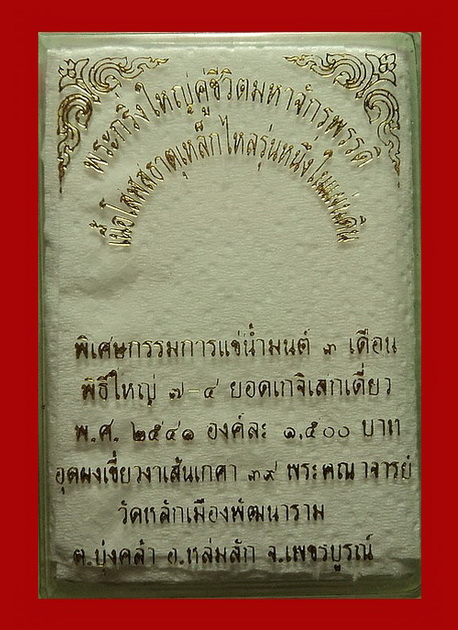 พระกริ่งใหญ่คู่ชีวิตมหาจักรพรรดิ
เนื้อโลหะธาตุเหล็กไหลรุ่นหนึ่งในแผ่นดิน
พิเศษกรรมการแช่น้ำมนต์ ๓ เดือน
พิธีใหญ่ ๗-๔ ยอดเกจิเสกเดี่ยว
พ.ศ. ๒๕๔๑ องค์ละ ๑,๕๐๐ บาท
อุดผงเขี้ยวงาเส้นเกศา ๓๙ พระคณาจารย์
วัดหลักเมืองพัฒนาราม
ต.บุ่งคล้า อ.หล่มสัก จ.เพชรบูรณ์